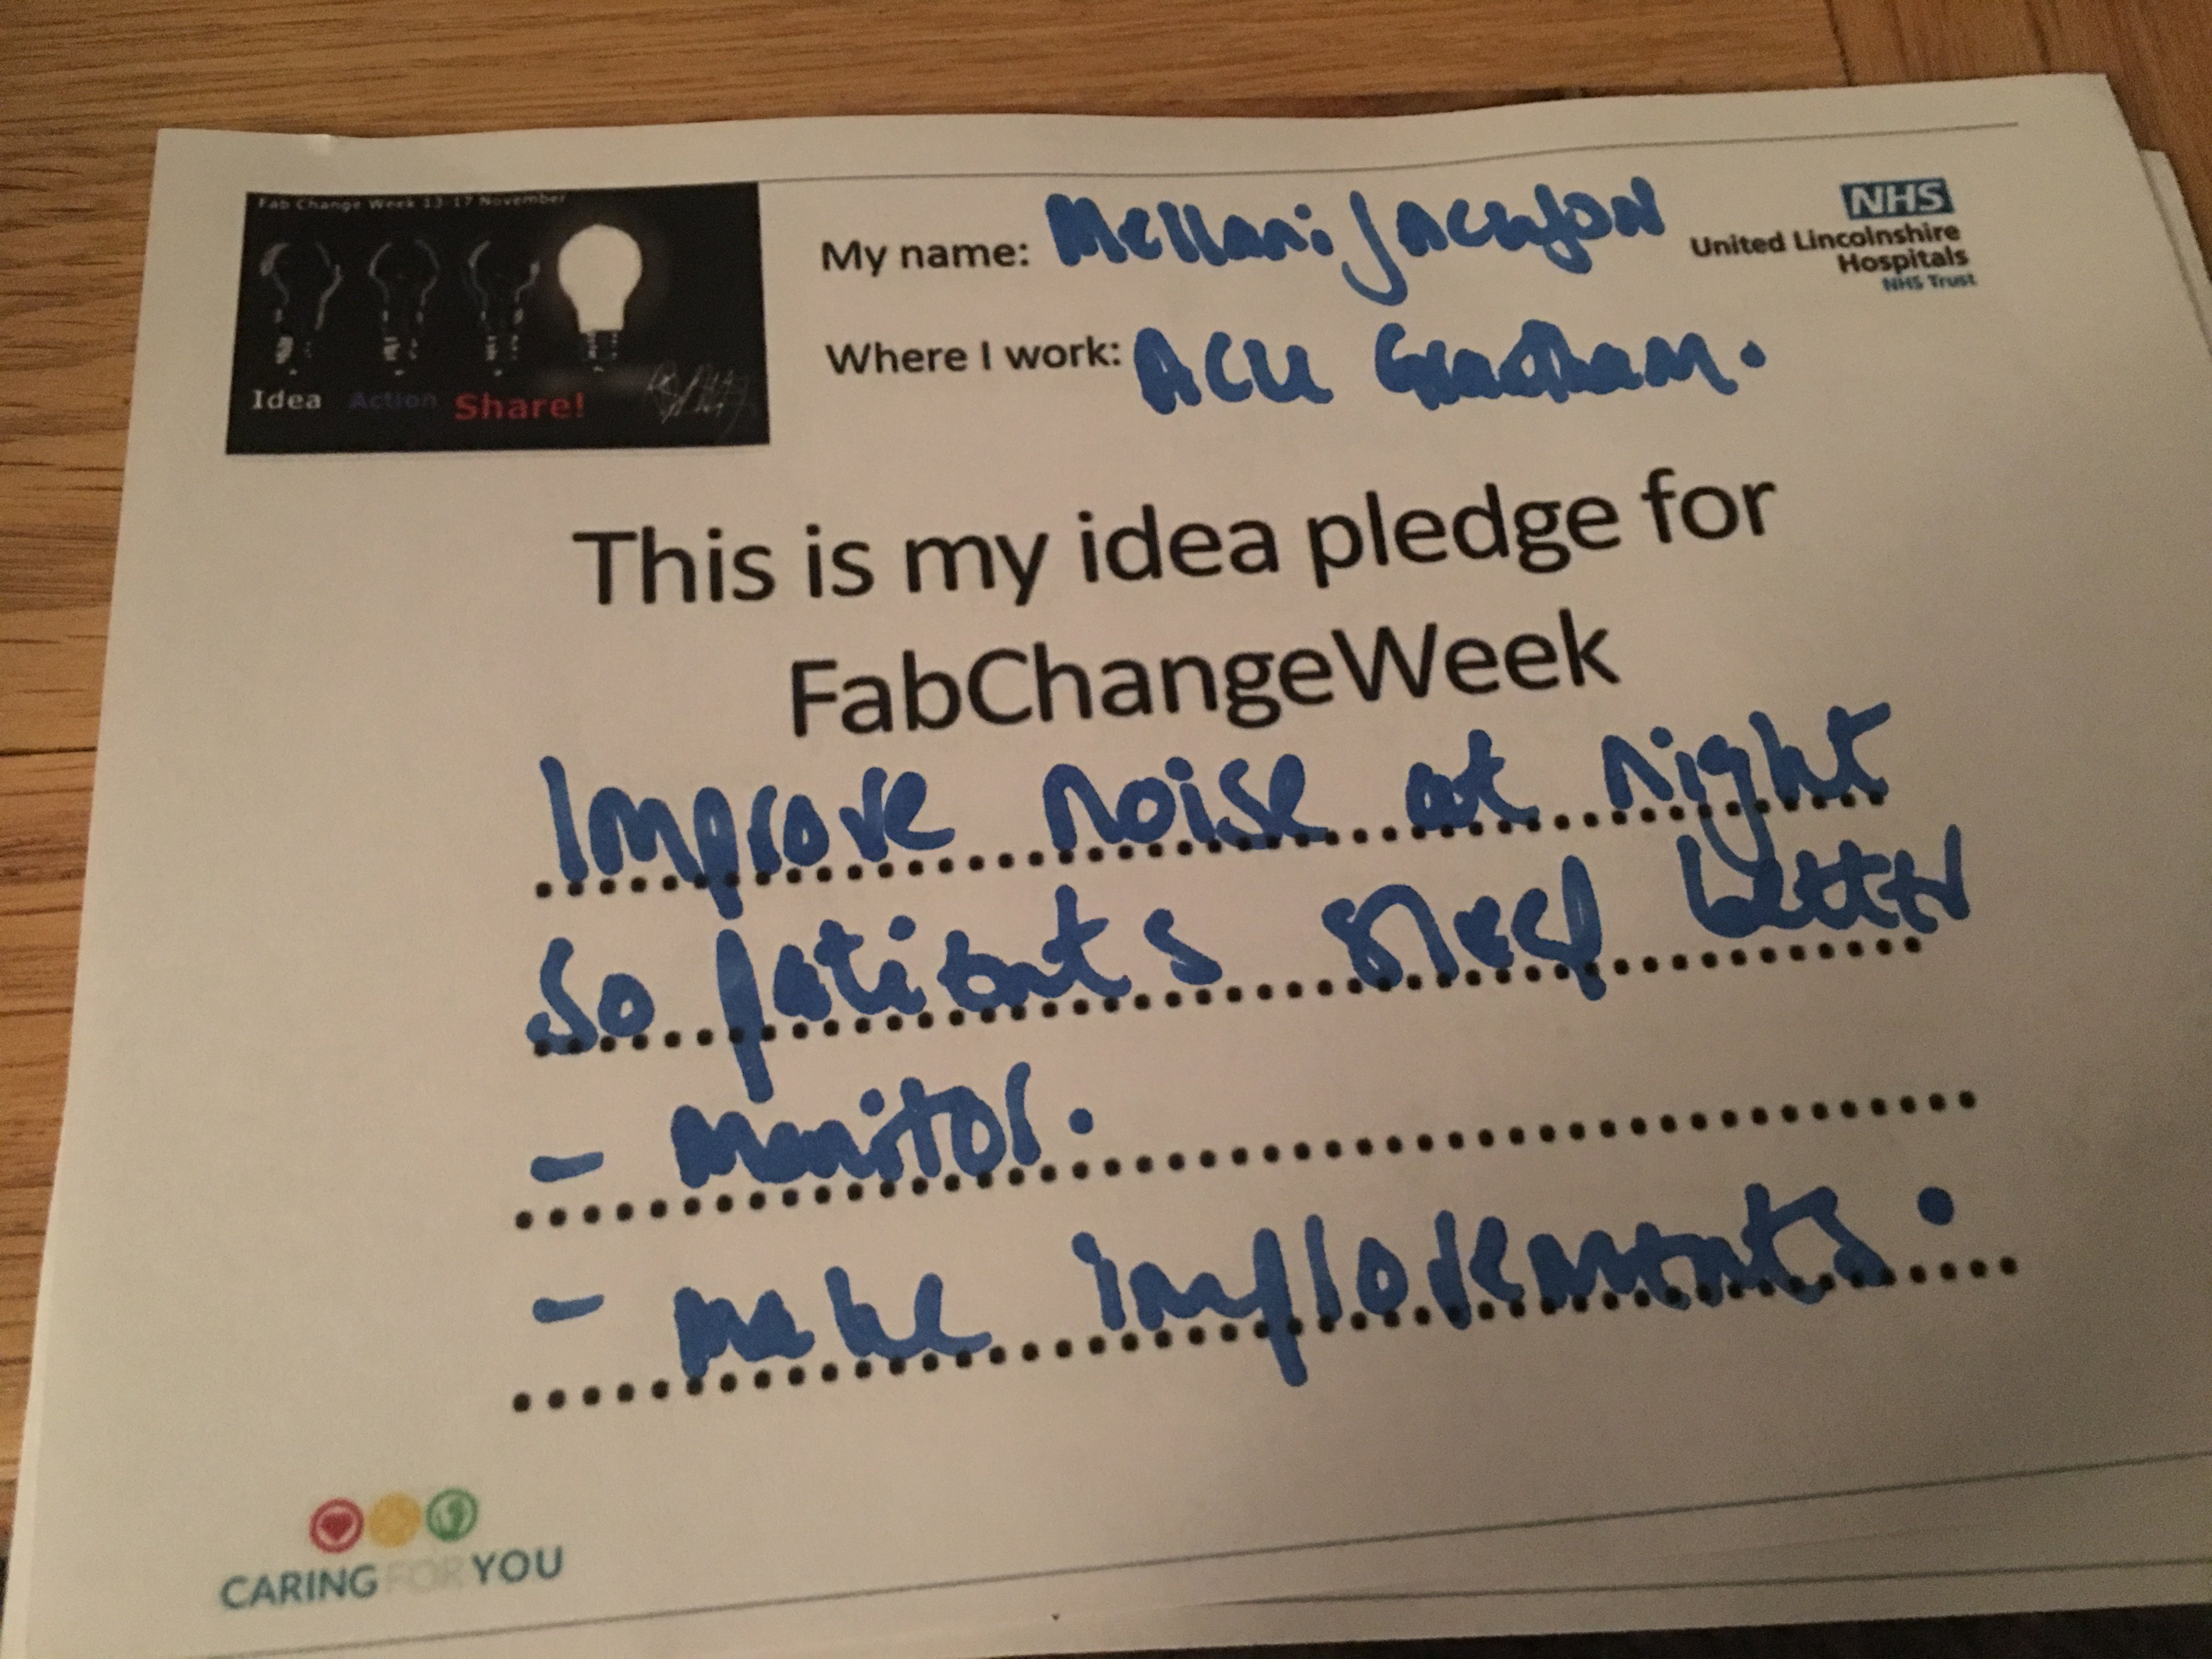 Fab Change Week 13-17 November
Idea Action Share!
My name: Mellani Jackson
Where I work: ACU Grantham.
NHS
United Lincolnshire
Hospitals
NHS Trust
This is my idea pledge for
FabChangeWeek
Improve noise at night
So patients sleep better
- monitor.
- make improvements.
CARING FOR YOU